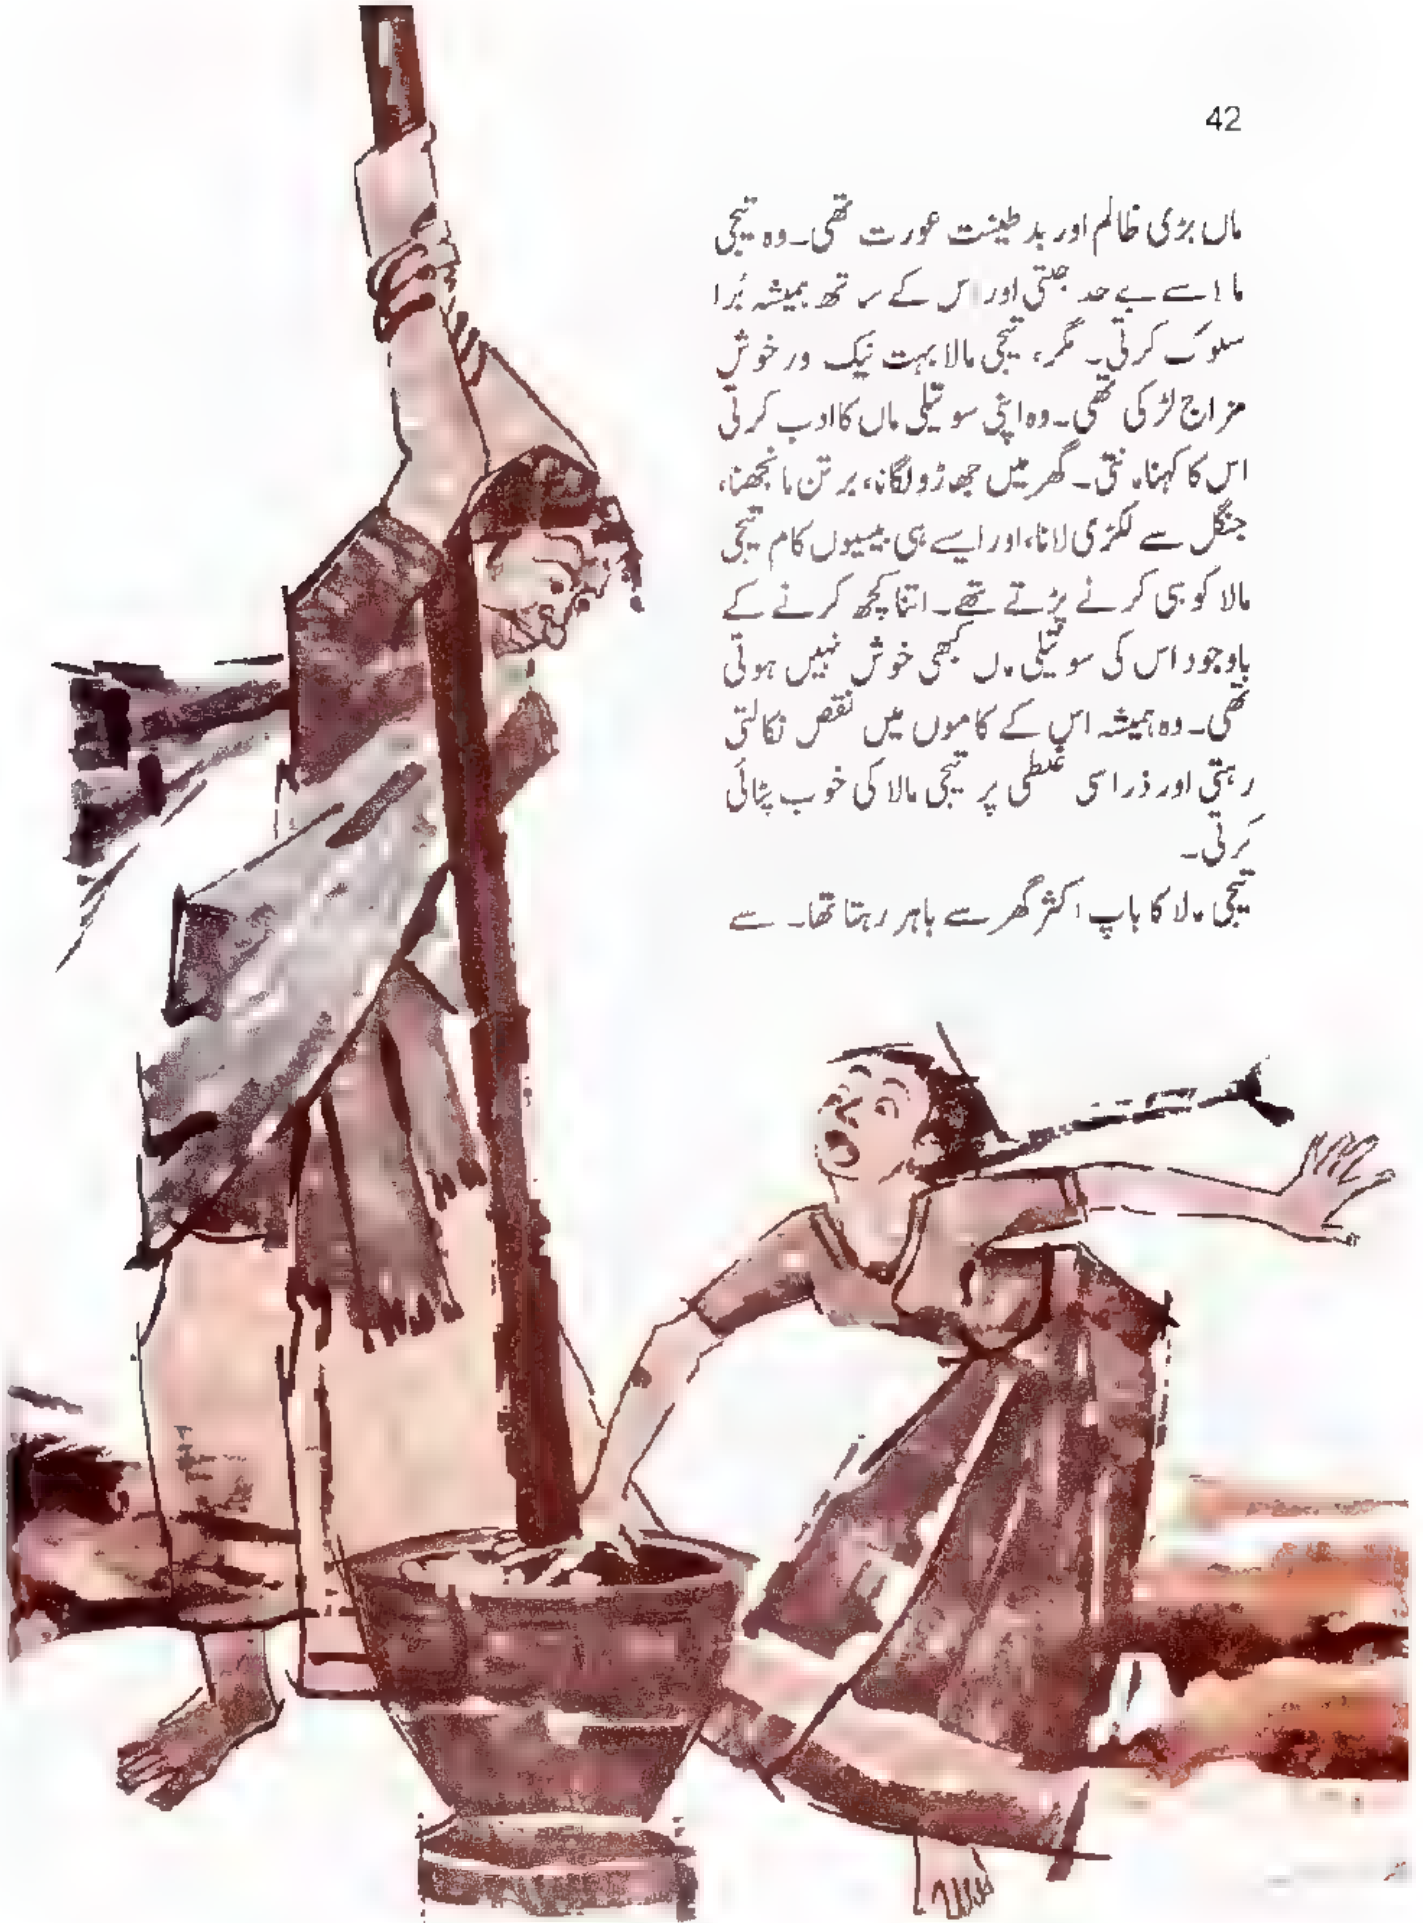 42
ماں بڑی ظالم اور بد طینت عورت تھی۔ وہ تیجی
مالا سے بے حد جلتی اور اس کے ساتھ ہمیشہ بُرا
سلوک کرتی۔ مگر، تیجی مالا بہت نیک اور خوش
مزاج لڑکی تھی۔ وہ اپنی سوتیلی ماں کا ادب کرتی
اس کا کہنا مانتی۔ گھر میں جھاڑو لگانا، برتن مانجھنا،
جنگل سے لکڑی لانا، اور ایسے ہی بیسیوں کام تیجی
مالا کو ہی کرنے پڑتے تھے۔ اتنا کچھ کرنے کے
باوجود اس کی سوتیلی ماں کبھی خوش نہیں ہوتی
تھی۔ وہ ہمیشہ اس کے کاموں میں نقص نکالتی
رہتی اور ذرا سی غلطی پر تیجی مالا کی خوب پٹائی
کرتی۔
تیجی مالا کا باپ اکثر گھر سے باہر رہتا تھا۔ اسے